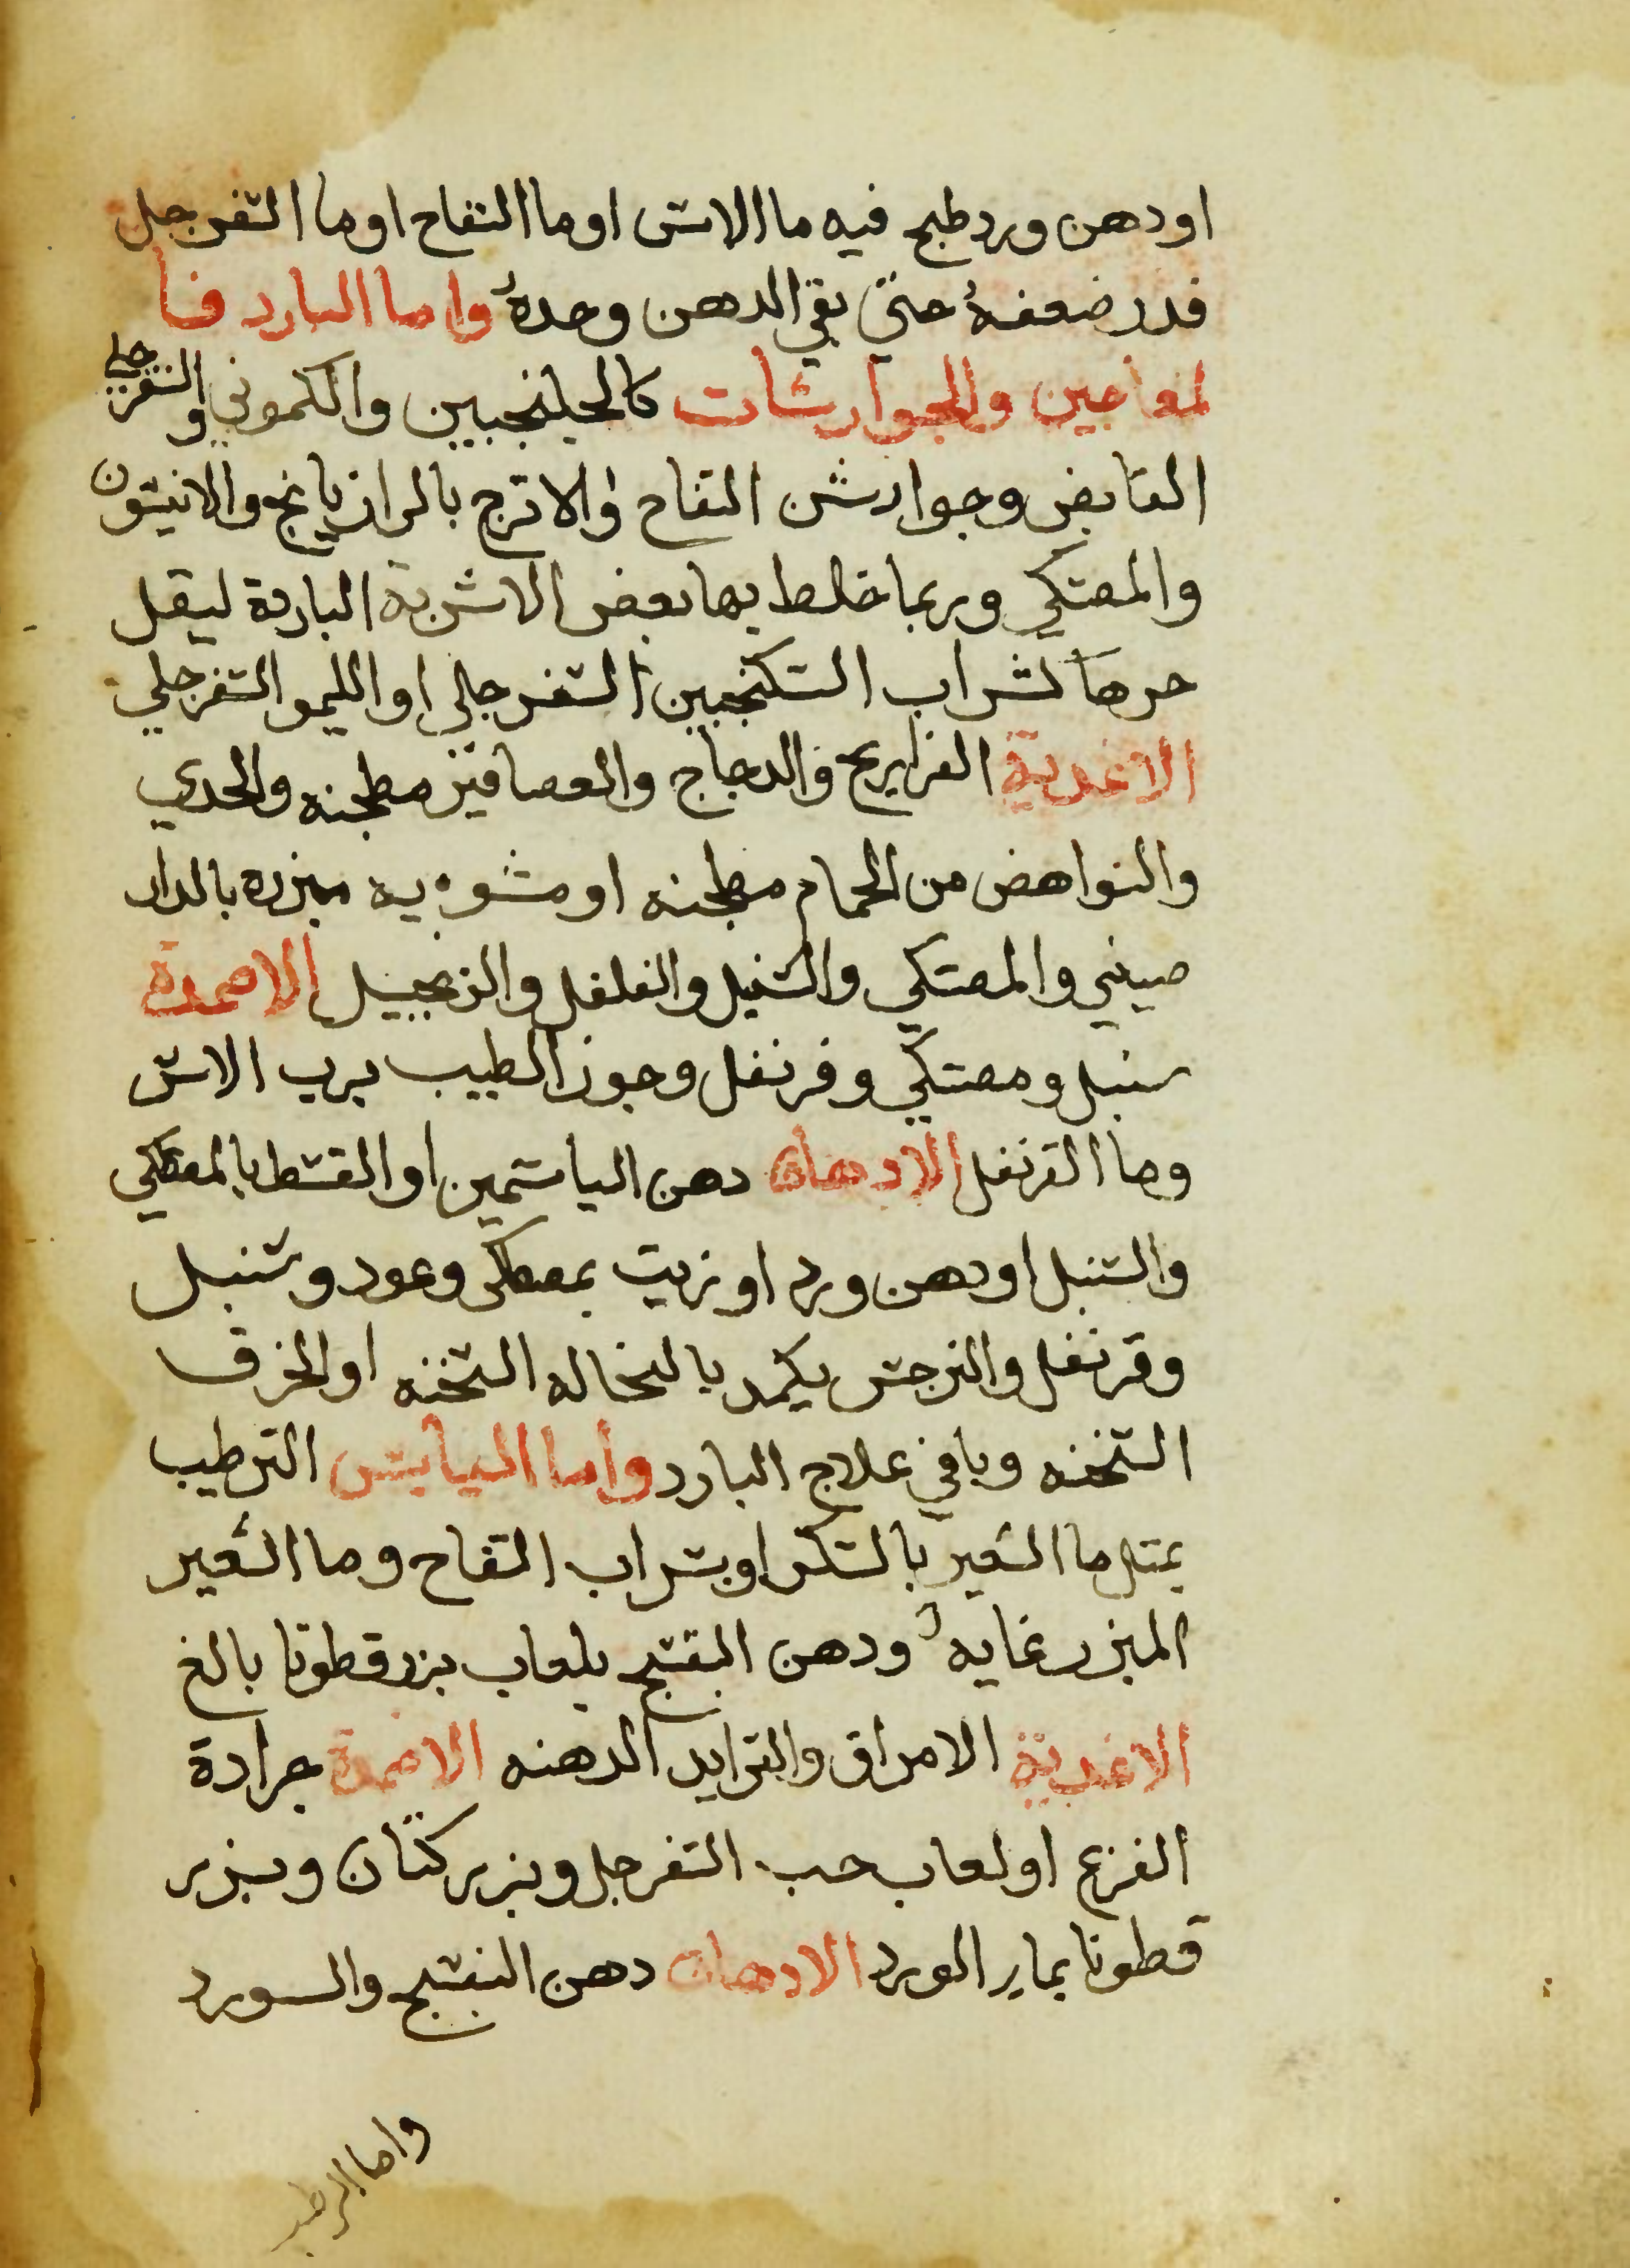 او دهن ورد طبخ فيه ما الاس او ما التفاح او ما السفرجل
قدر ضعفه حتى بقي الدهن وحده واما البارد فا
لمعاجين والجوارشات كالجلنجبين والكموني والسفرجلي
القابض وجوارشن التفاح والاترج بالرازيانج والانيسون
والمصتكي وربما خلط بها بعض الاشربة الباردة ليقل
حرها كشراب السكنجبين السفرجلي او الليمو السفرجلي
الاغدية الفراريج والدجاج والعصافير مطجنه والجدي
والنواهض من الحمام مطجنه او مشويه مبزره بالدار
صيني والمصتكي والسنبل والفلفل والزنجبيل الاضمدة
سنبل ومصتكي وقرنفل وجوز الطيب برب الاس
وما القرنفل الادهان دهن الياسمين او القسط بالمصطكي
والسنبل او دهن ورد او زيت بمصطكى وعود وسنبل
وقرنفل والنرجس يكمد بالنخاله السخنه او الخرق
السخنه وباقي علاج البارد وأما اليابس الترطيب
بمثل ما الشعير بالسكر او بشراب التفاح وما الشعير
المبزر غايه ودهن البنفسج بلعاب بزر قطونا بالغ
الاغدية الامراق والترايد الدهنه الاضمدة جرادة
القرع او لعاب حب السفرجل وبزر كتان وبزر
قطونا بماء الورد الادهان دهن البنفسج والورد
واما الرطب